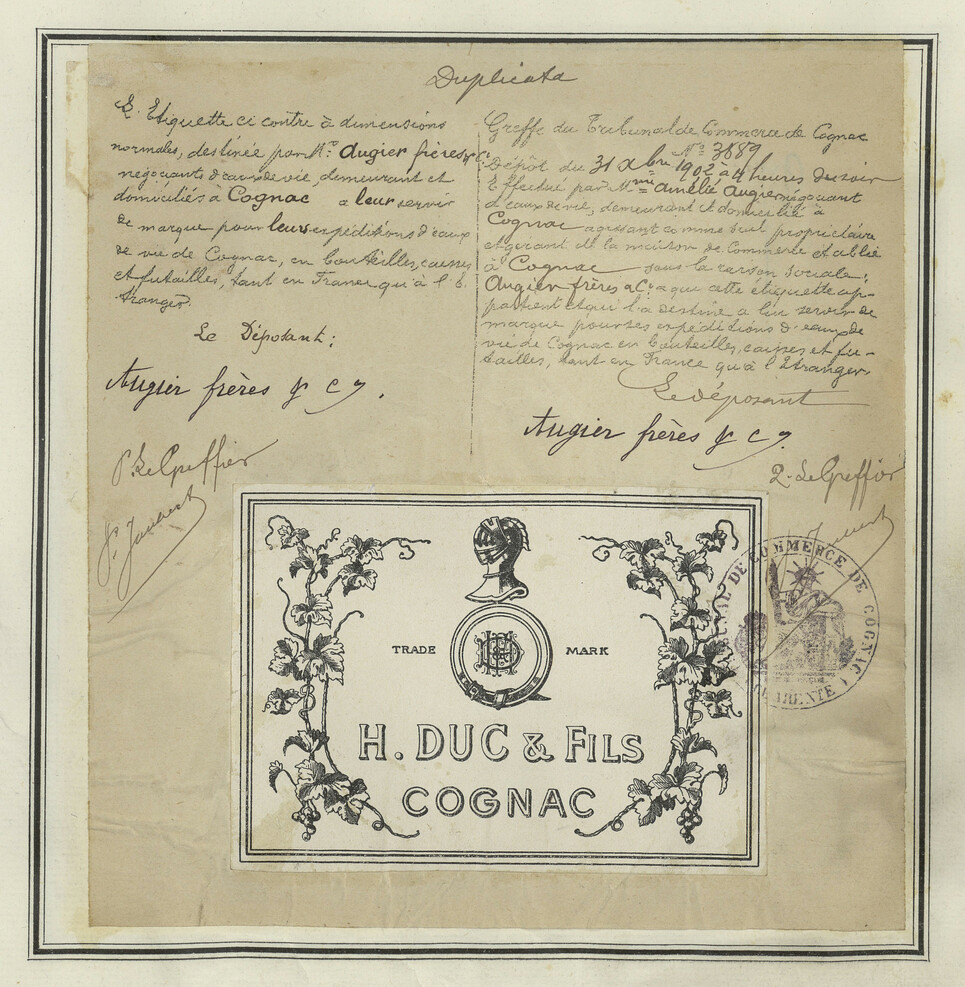 Duplicata
L'Etiquette ci contre à dimensions
normales, destinée par Mrs. Augier frères & Cie
négociants d'eau de vie, demeurant et
domiciliés à Cognac a leur servir
de marque pour leurs expéditions d'eaux
de vie de Cognac, en bouteilles, caisses
et futailles, tant en France qu'à l'é-
tranger.
Le Déposant:
Augier frères & Cy.
P. Le Greffier
P. Joubert
Greffe du Tribunal de Commerce de Cognac
No 3689
Dépôt du 31 Xbre 1902 à 4 heures du soir
Effectué par Mme Amélie Augier négociant
d'eaux de vie, demeurant et domicilié à
Cognac agissant comme seul propriétaire
et gérant de la maison de Commerce établie
à Cognac sous la raison sociale:
Augier frères & Cie a qui cette étiquette ap-
partient et qui l'a destine a lui servir de
marque pour ses expéditions d'eaux de
vie de Cognac en bouteilles, caisses et fu-
tailles, tant en France qu'à l'Etranger.
Le déposant
Augier frères & Cy.
P. Le Greffier
TRADE MARK
H. DUC & FILS
COGNAC
TRIBUNAL DE COMMERCE DE COGNAC
CHARENTE